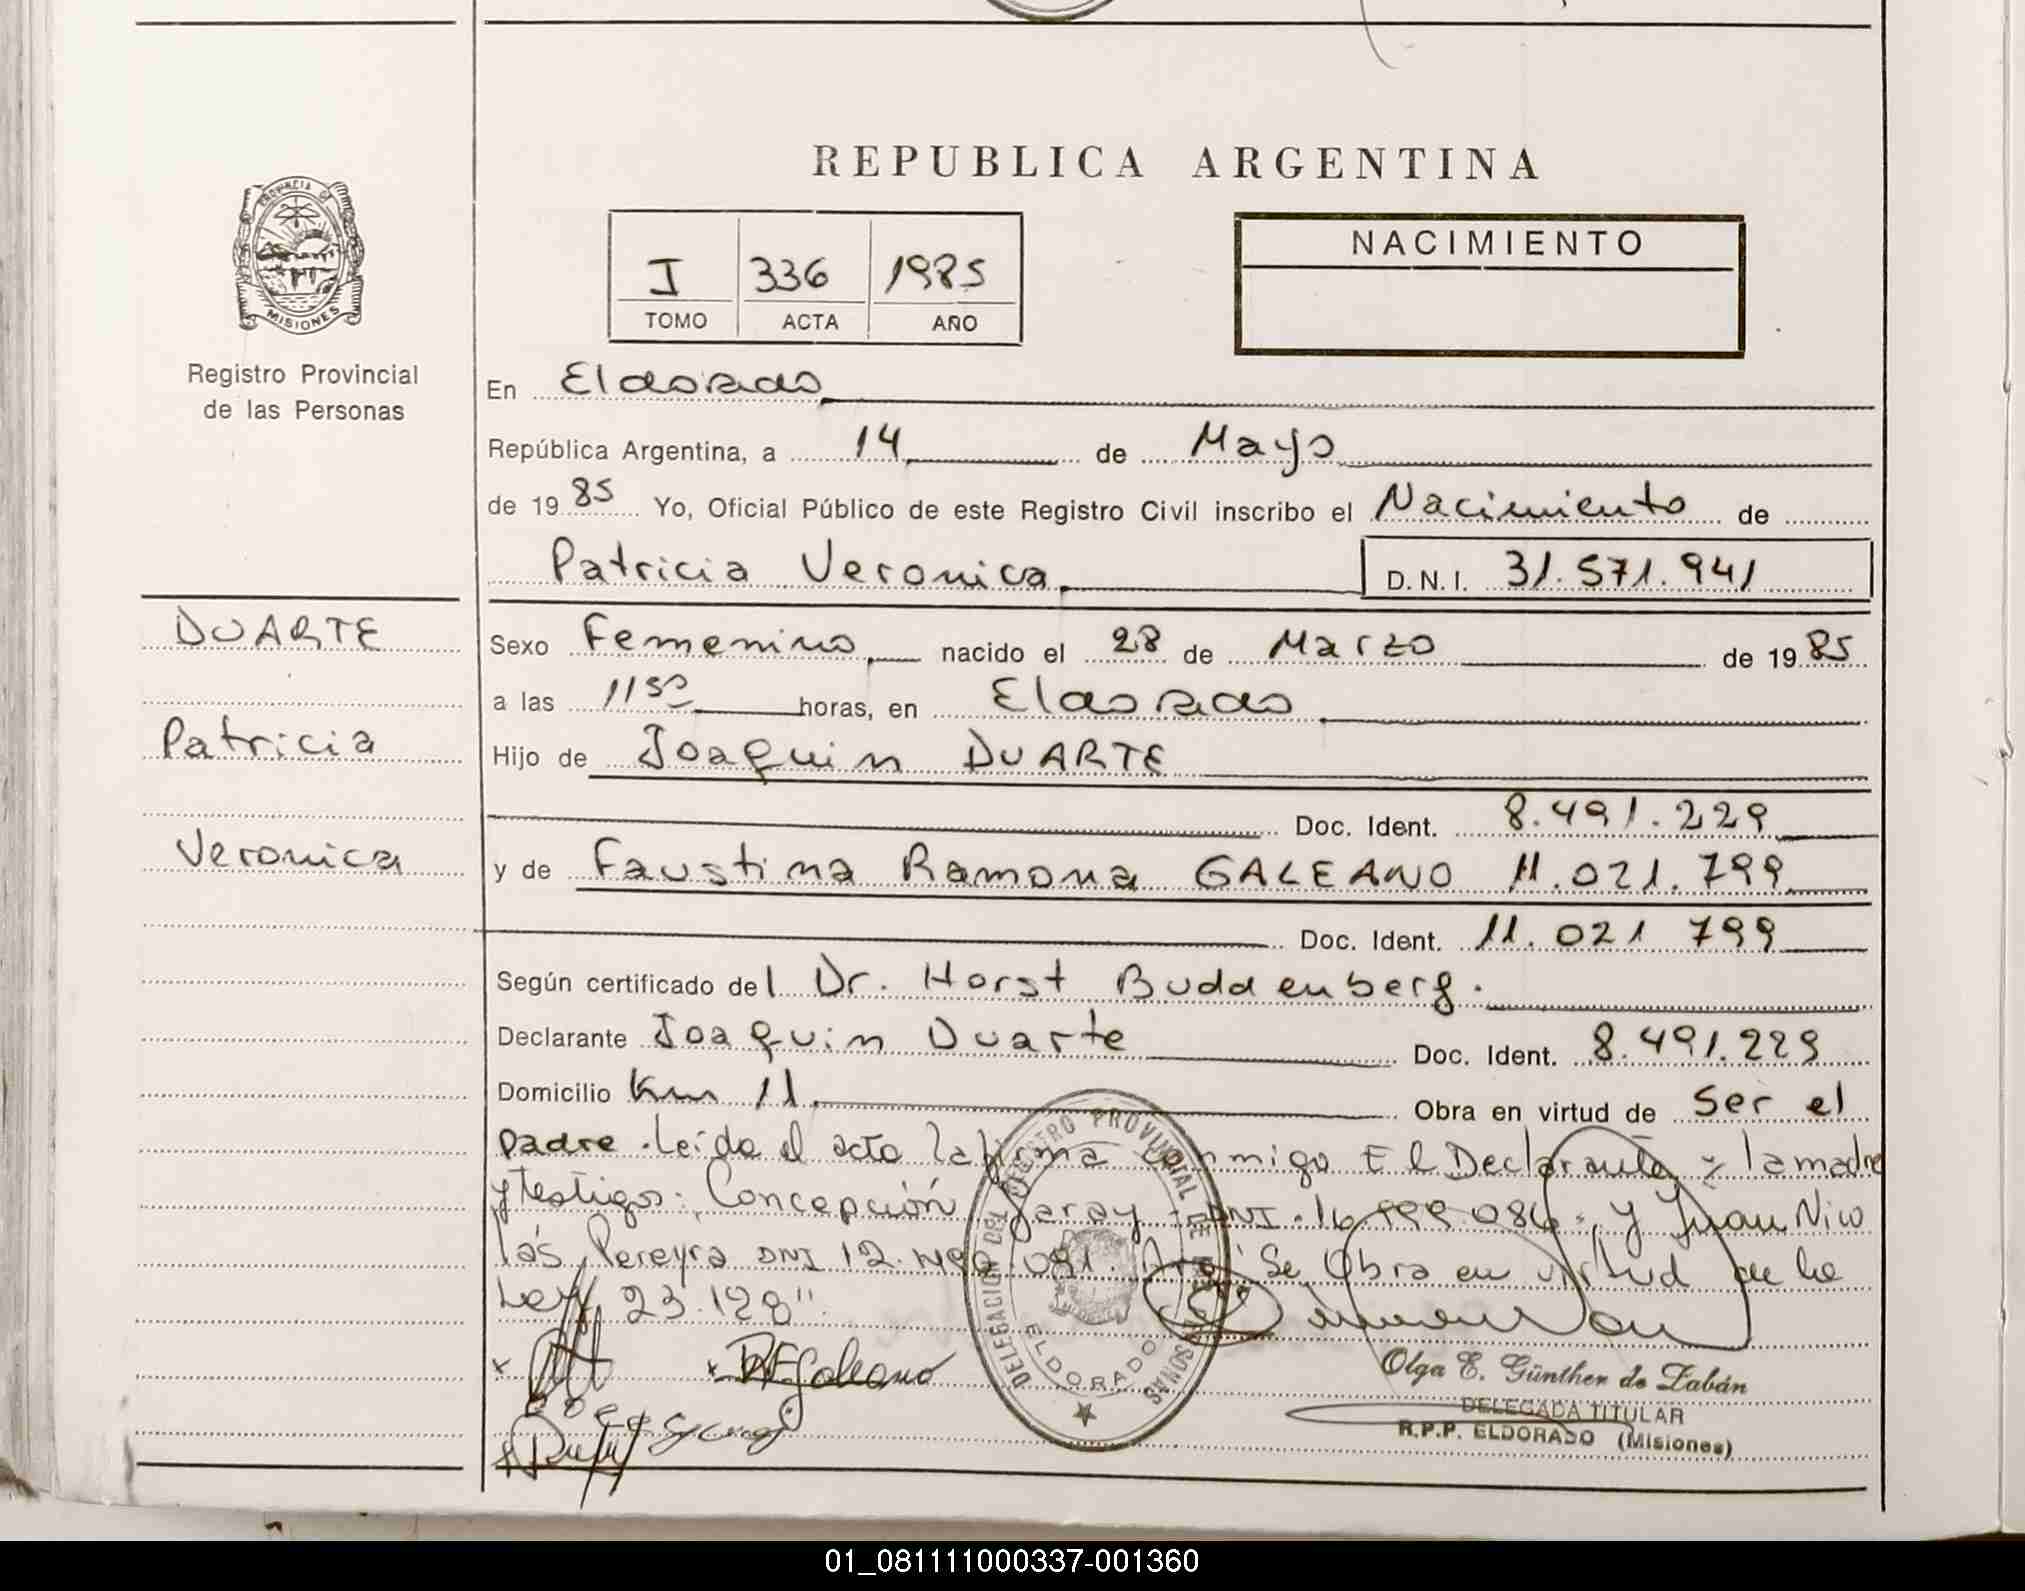 REPUBLICA ARGENTINA
PROVINCIA DE
MISIONES
Registro Provincial
de las Personas
I 336 1985
TOMO ACTA AÑO
NACIMIENTO
En Eldorado
República Argentina, a 14 de Mayo
de 1985 Yo, Oficial Público de este Registro Civil inscribo el Nacimiento de
Patricia Veronica D.N.I. 31.571.941
DUARTE
Patricia
Veronica
Sexo Femenino, nacido el 28 de Marzo de 1985
a las 11 50 horas, en Eldorado
Hijo de Joaquin DUARTE
Doc. Ident. 8.491.229
y de Faustina Ramona GALEANO 11.021.799
Doc. Ident. 11.021 799
Según certificado del Dr. Horst Buddenberg.
Declarante Joaquin Duarte Doc. Ident. 8.491.229
Domicilio Km 11 Obra en virtud de Ser el
padre. Leída el acta la firma conmigo El Declarante y la madre
y testigos: Concepción Garay DNI. 16. 086 y Juan Nico
lás Pereyra DNI 12. 091. Se Obra en virtud de la
Ley 23.128"
DELEGACION DEL REGISTRO PROVINCIAL DE LAS PERSONAS
ELDORADO
Galeano
Olga E. Günther de Zabán
DELEGADA TITULAR
R.P.P. ELDORADO (Misiones)
01_081111000337-001360